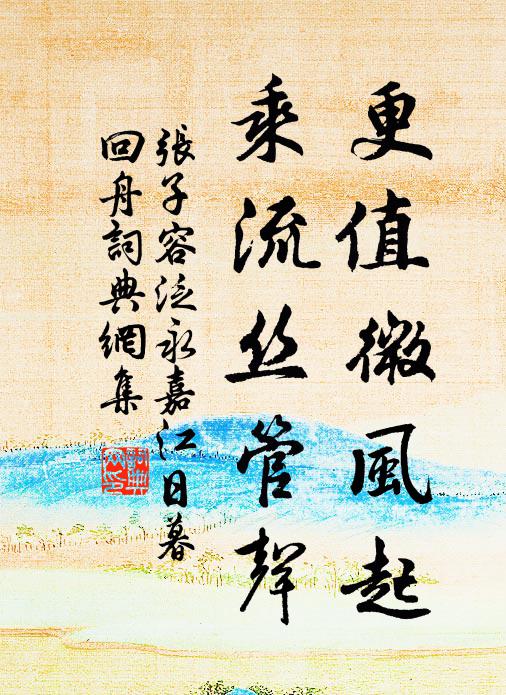 更值微風起
乘流丝管聲
張子容泛永嘉江日暮
回舟詞典網集